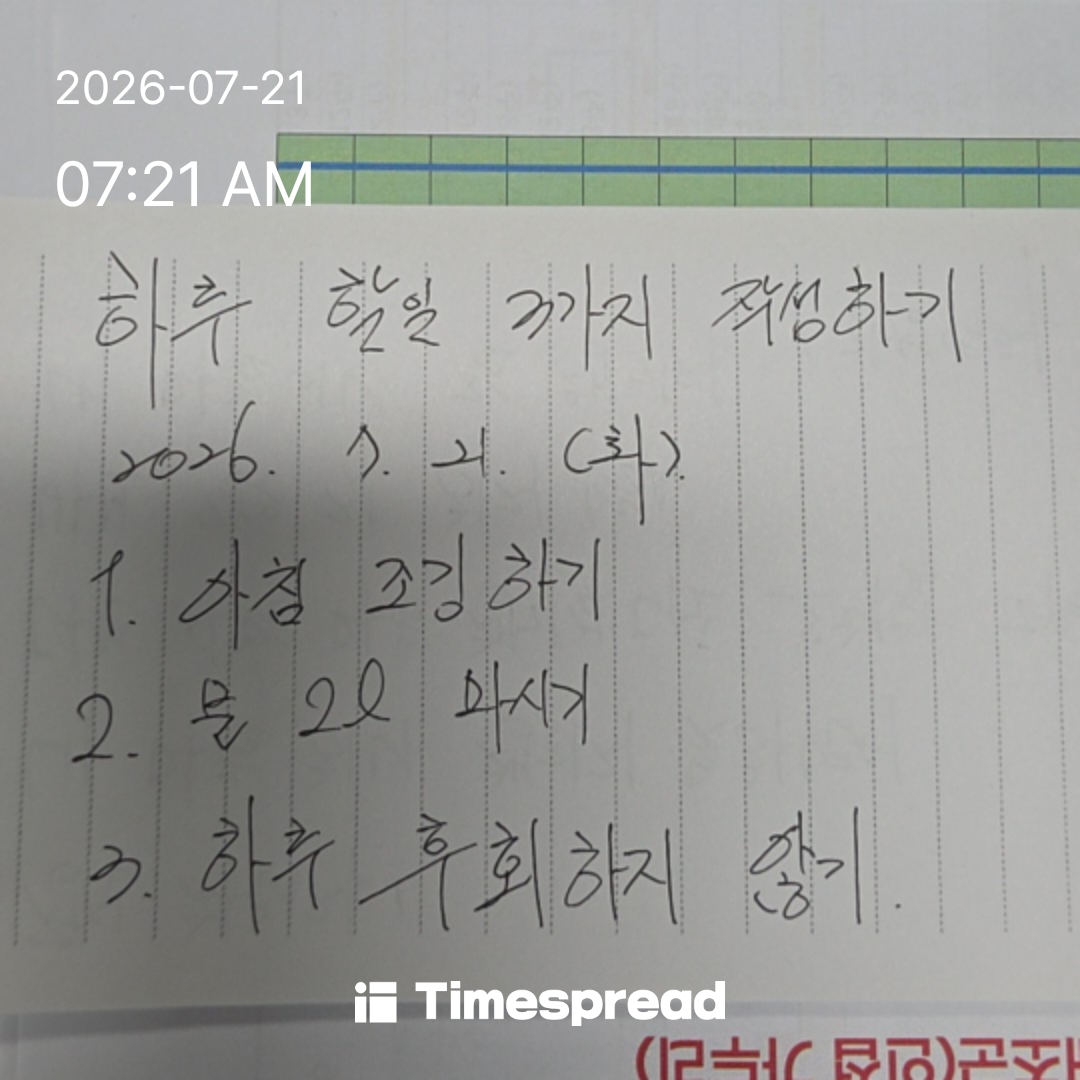 2026-07-21
07:21 AM
하루 할일 3가지 작성하기
2026. 7. 21. (화).
1. 아침 조깅하기
2. 물 2l 마시기
3. 하루 후회하지 않기.
Timespread